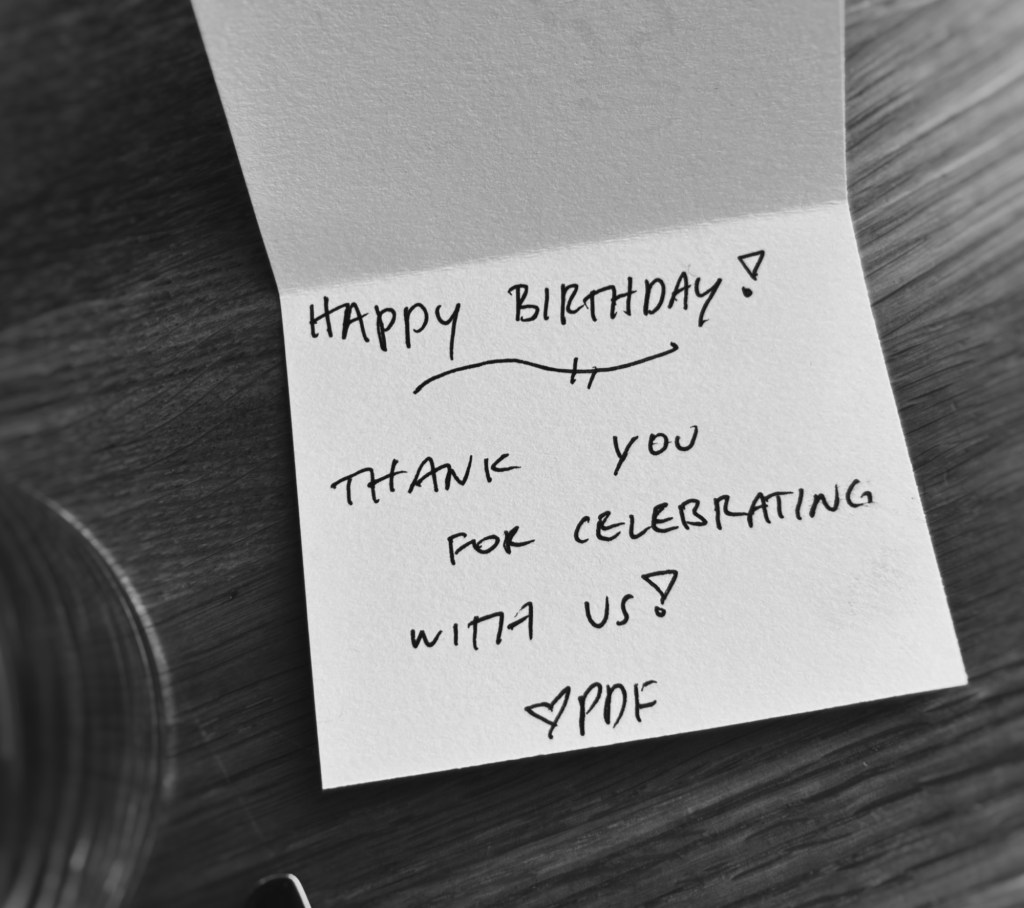 HAPPY BIRTHDAY!
THANK YOU
FOR CELEBRATING
WITH US!
♡PDF